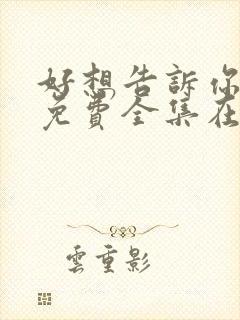 好想告訴你
免費全集在
雲重影